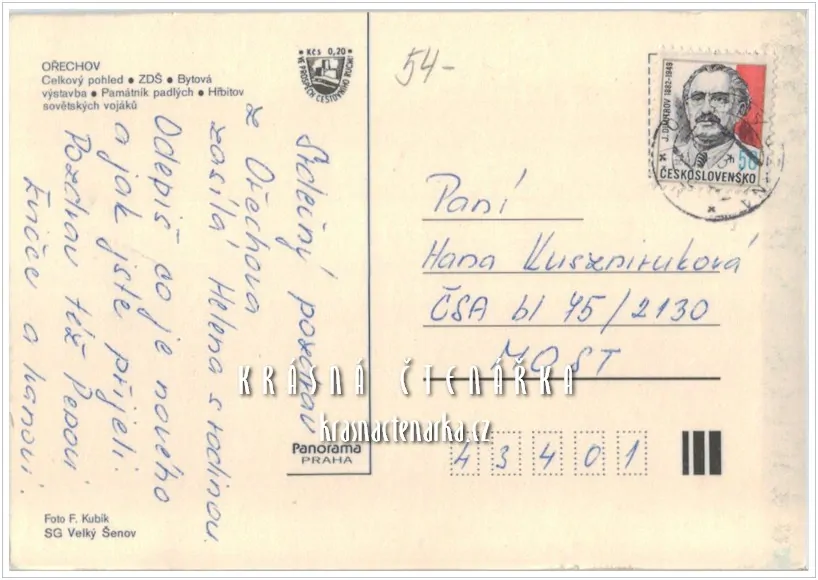 ОŘECHOV
Celkový pohled ● ZDŠ ● Bytová
výstavba ● Památník padlých ● Hřbitov
sovětských vojáků
● Kčs 0,20 ●
VE PROSPĚCH CESTOVNÍHO RUCHU
54-
J. DIMITROV 1882-1949
50
ČESKOSLOVENSKO
Srdečný pozdrav
z Ořechova
zasílá Helena s rodinou.
Odepiš co je nového
a jak jste přijeli.
Pozdrav též Pepovi
a Hanovi.
Paní
Hana Kuszniruková
ČSA bl 45/2130
MOST
KRÁSNÁ ČTENÁŘKA
krasnactenarka.cz
Panorama
PRAHA
43401
Foto F. Kubík
SG Velký Šenov